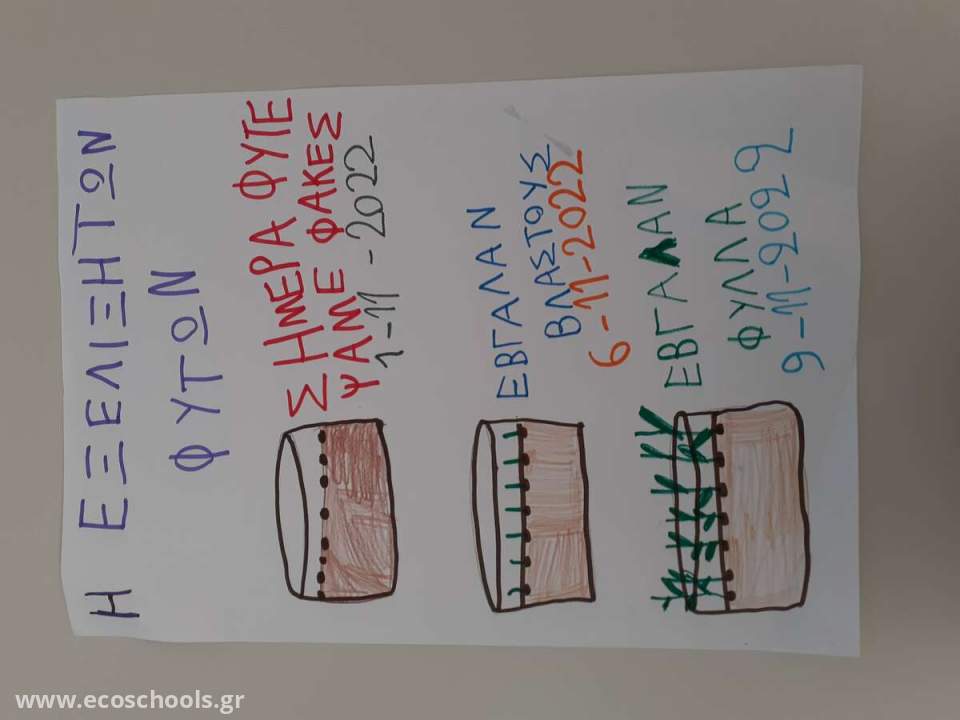 Η ΕΞΕΛΙΞΗ ΤΩΝ
ΦΥΤΩΝ
ΣΗΜΕΡΑ ΦΥΤΕ
ΨΑΜΕ ΦΑΚΕΣ
1-11-2022
ΕΒΓΑΛΑΝ
ΒΛΑΣΤΟΥΣ
6-11-2022
ΕΒΓΑΛΑΝ
ΦΥΛΛΑ
9-11-2022
www.ecoschools.gr